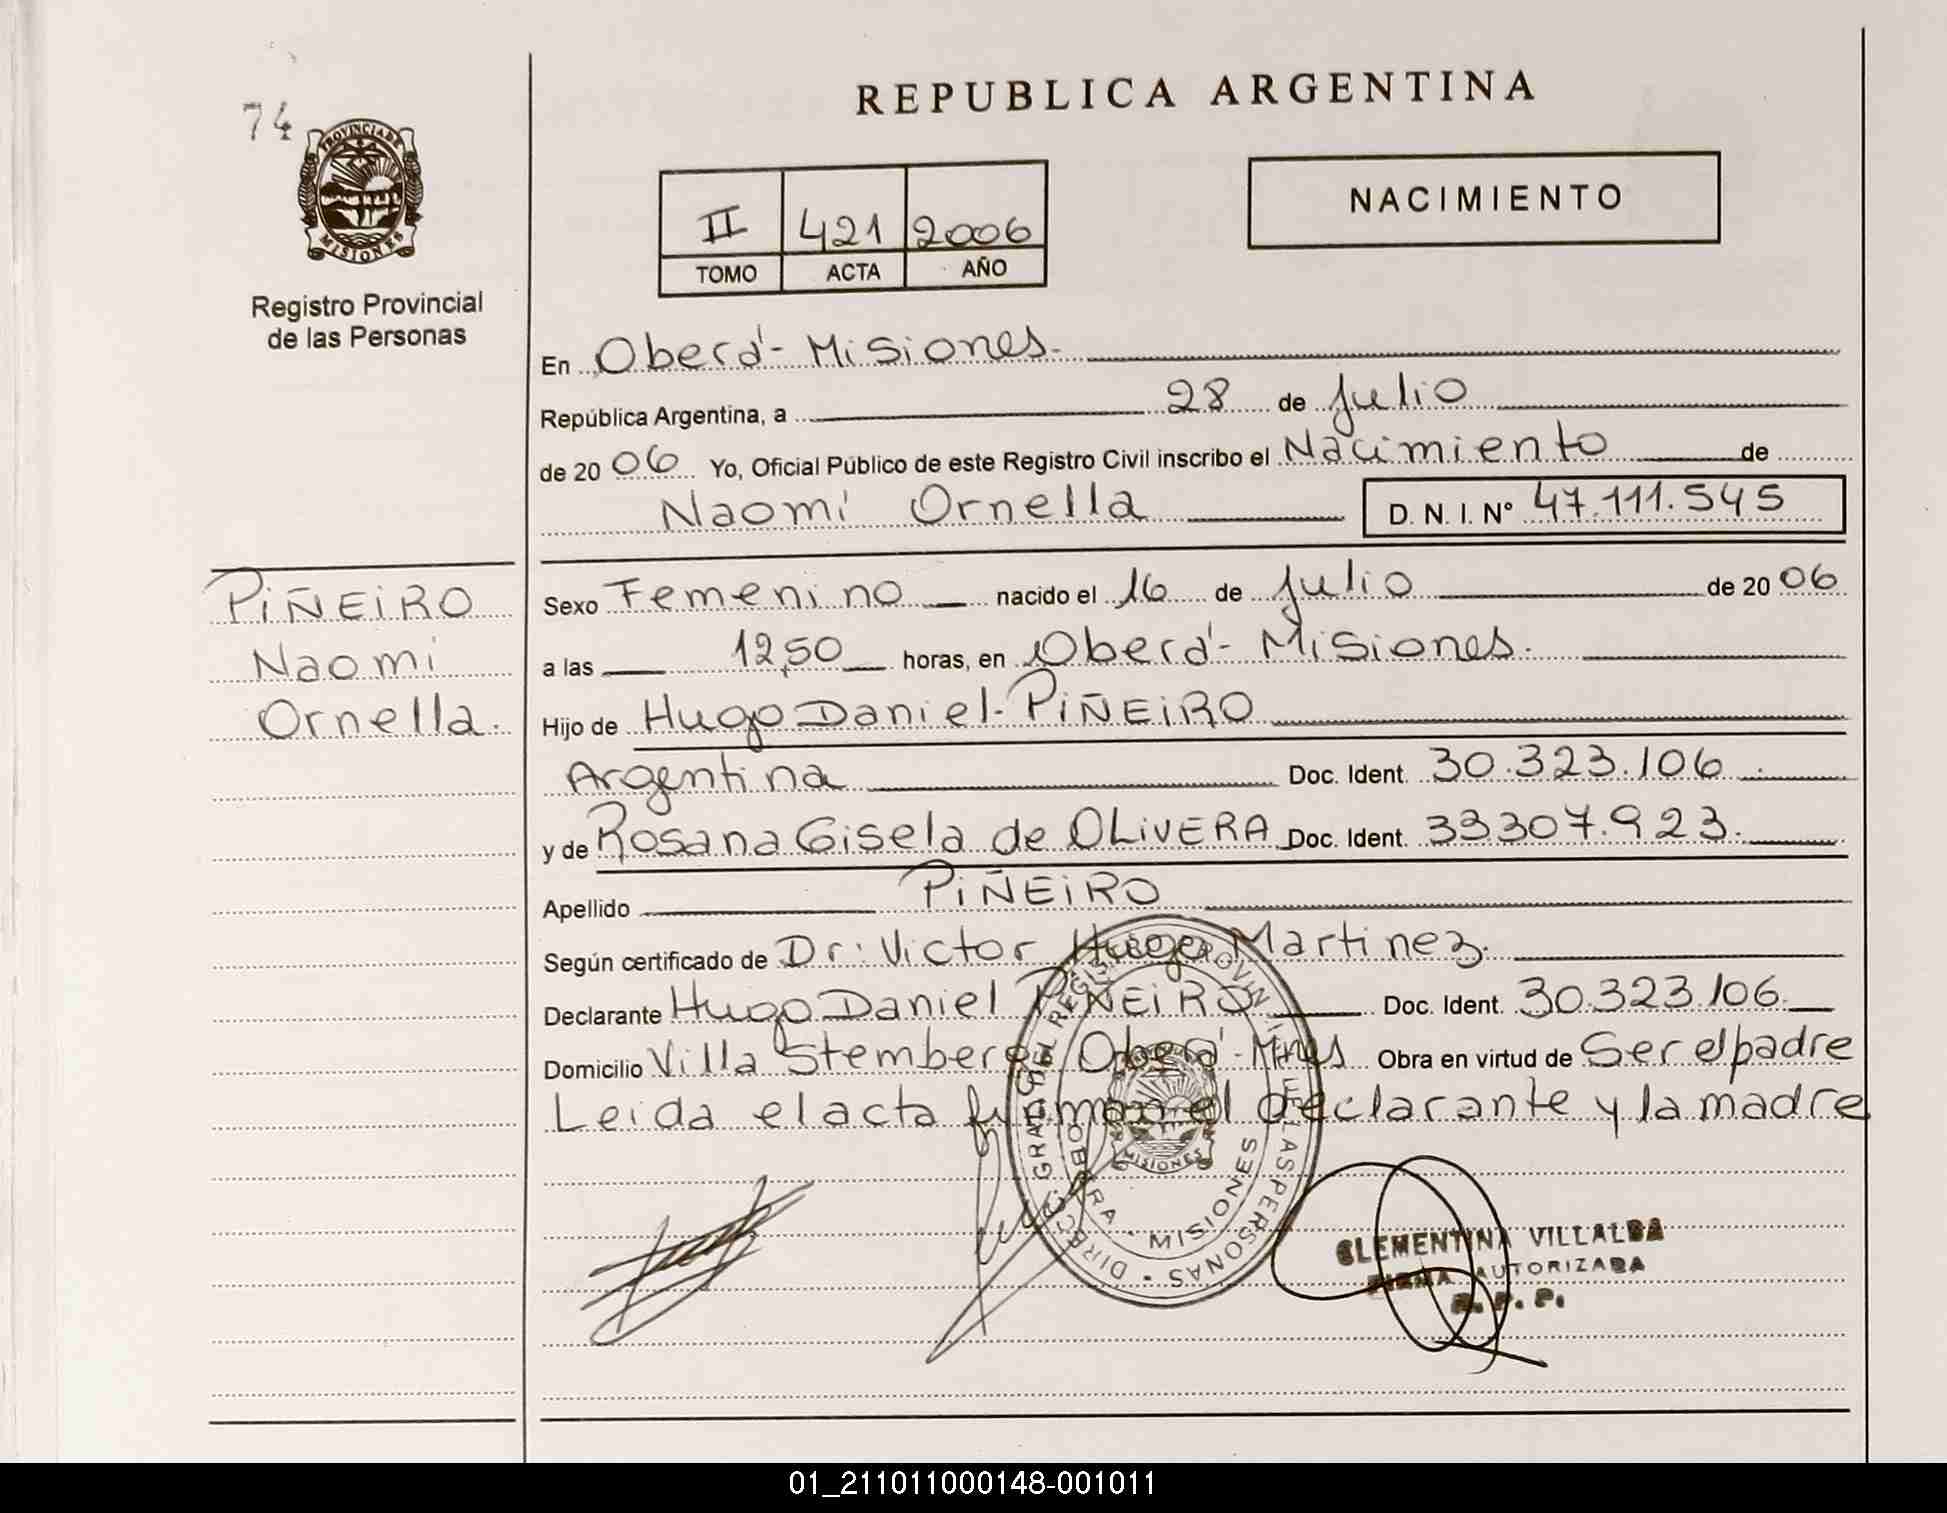 REPUBLICA ARGENTINA
74
PROVINCIA DE
MISIONES
Registro Provincial
de las Personas
II 421 2006
TOMO ACTA AÑO
NACIMIENTO
En Oberá - Misiones.
República Argentina, a 28 de Julio
de 2006 Yo, Oficial Público de este Registro Civil inscribo el Nacimiento de
Naomi Ornella D. N. I. N° 47.111.545
PIÑEIRO
Naomi
Ornella.
Sexo Femenino nacido el 16 de Julio de 2006
a las 12,50 horas, en Oberá - Misiones.
Hijo de Hugo Daniel PIÑEIRO
Argentina Doc. Ident. 30.323.106
y de Rosana Gisela de OLIVERA Doc. Ident. 33307.923.
Apellido PIÑEIRO
Según certificado de Dr: Victor Hugo Martinez.
Declarante Hugo Daniel PIÑEIRO Doc. Ident. 30.323.106.
Domicilio Villa Stemberg Oberá - Mnes Obra en virtud de Ser el padre
Leida el acta firman el declarante y la madre
DIRECC. GRAL. DEL REGISTRO PROVINCIAL DE LAS PERSONAS
OBERA - MISIONES
MISIONES
CLEMENTINA VILLALBA
FIRMA AUTORIZADA
R. P. P.
01_211011000148-001011